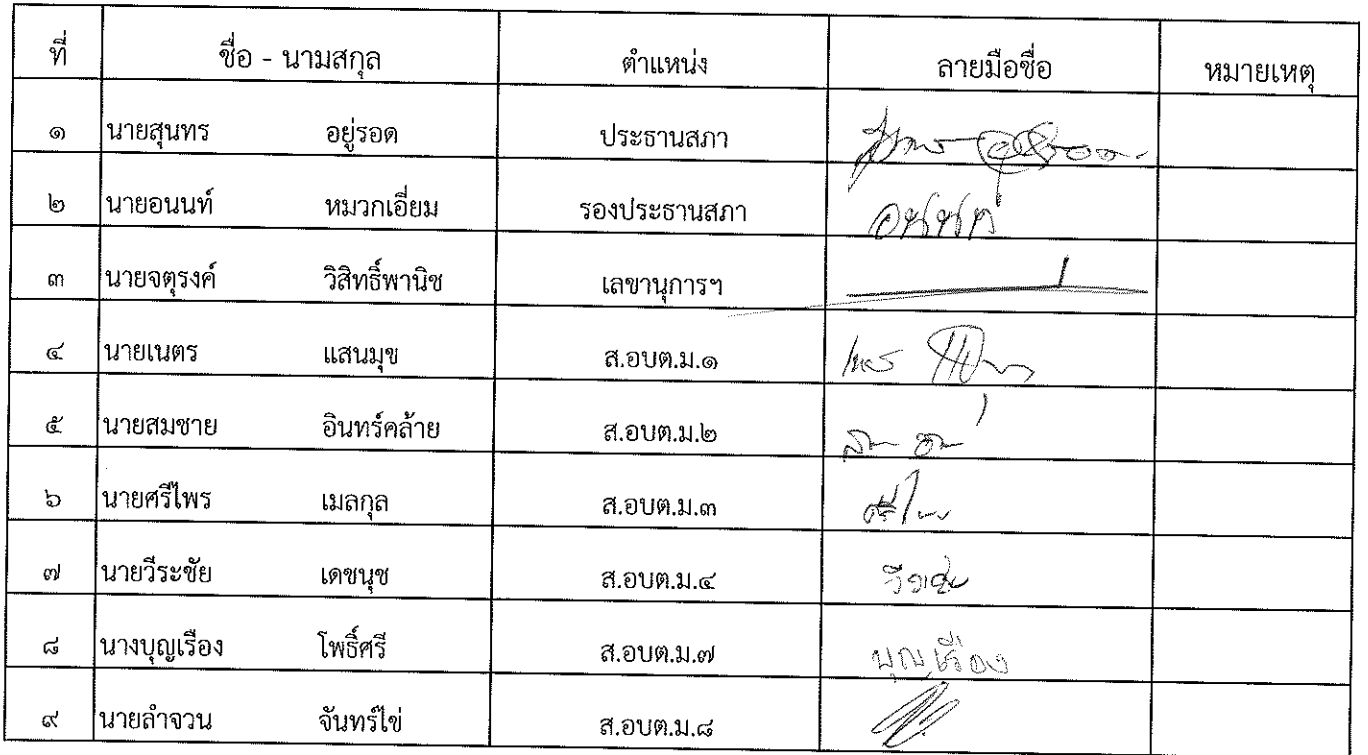 ที่ ชื่อ - นามสกุล ตำแหน่ง ลายมือชื่อ หมายเหตุ
๑ นายสุนทร อยู่รอด ประธานสภา
๒ นายอนนท์ หมวกเอี่ยม รองประธานสภา อนนท์
๓ นายจตุรงค์ วิสิทธิ์พานิช เลขานุการฯ
๔ นายเนตร แสนมุข ส.อบต.ม.๑
๕ นายสมชาย อินทร์คล้าย ส.อบต.ม.๒
๖ นายศรีไพร เมลกุล ส.อบต.ม.๓
๗ นายวีระชัย เดชนุช ส.อบต.ม.๔
๘ นางบุญเรือง โพธิ์ศรี ส.อบต.ม.๗ บุญเรือง
๙ นายลำจวน จันทร์ไข่ ส.อบต.ม.๘